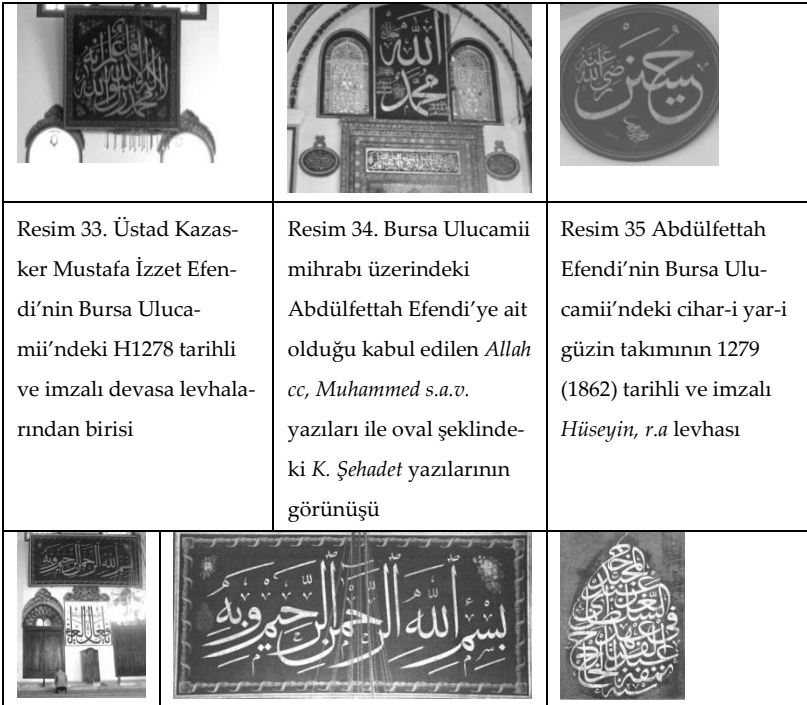 الله
محمد
حسين
رضي الله عنه
Resim 33. Üstad Kazas-
ker Mustafa İzzet Efen-
di’nin Bursa Uluca-
mii’ndeki H1278 tarihli
ve imzalı devasa levhala-
rından birisi
Resim 34. Bursa Ulucamii
mihrabı üzerindeki
Abdülfettah Efendi’ye ait
olduğu kabul edilen Allah
cc, Muhammed s.a.v.
yazıları ile oval şeklinde-
ki K. Şehadet yazılarının
görünüşü
Resim 35 Abdülfettah
Efendi’nin Bursa Ulu-
camii’ndeki cihar-i yar-i
güzin takımının 1279
(1862) tarihli ve imzalı
Hüseyin, r.a levhası
بسم الله الرحمن الرحيم وبه
بسم الله الرحمن الرحيم وبه